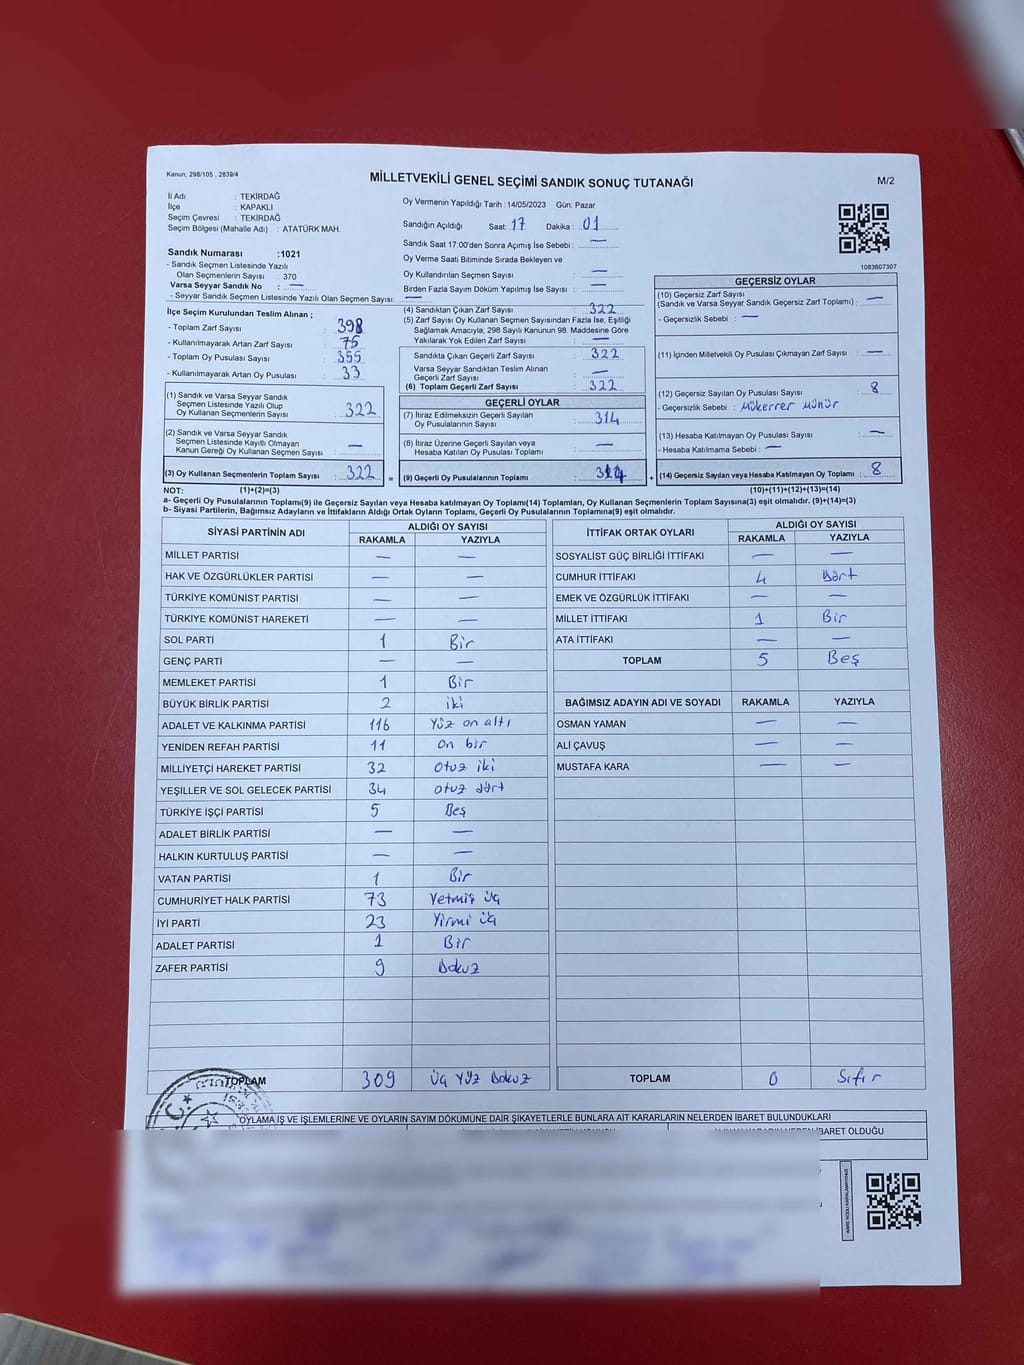 Kanun; 298/105 , 2839/4
MİLLETVEKİLİ GENEL SEÇİMİ SANDIK SONUÇ TUTANAĞI
M/2
İl Adı : TEKİRDAĞ
İlçe : KAPAKLI
Seçim Çevresi : TEKİRDAĞ
Seçim Bölgesi (Mahalle Adı) : ATATÜRK MAH.
Sandık Numarası :1021
- Sandık Seçmen Listesinde Yazılı
Olan Seçmenlerin Sayısı : 370
Varsa Seyyar Sandık No : —
- Seyyar Sandık Seçmen Listesinde Yazılı Olan Seçmen Sayısı: —
Oy Vermenin Yapıldığı Tarih :14/05/2023 Gün: Pazar
Sandığın Açıldığı Saat: 17 Dakika : 01
Sandık Saat 17:00'den Sonra Açımış İse Sebebi : —
Oy Verme Saati Bitiminde Sırada Bekleyen ve
Oy Kullandırılan Seçmen Sayısı : —
Birden Fazla Sayım Döküm Yapılmış İse Sayısı : —
1083607307
İlçe Seçim Kurulundan Teslim Alınan ;
- Toplam Zarf Sayısı : 398
- Kullanılmayarak Artan Zarf Sayısı : 75
- Toplam Oy Pusulası Sayısı : 355
- Kullanılmayarak Artan Oy Pusulası : 33
(1) Sandık ve Varsa Seyyar Sandık
Seçmen Listesinde Yazılı Olup
Oy Kullanan Seçmenlerin Sayısı : 322
(2) Sandık ve Varsa Seyyar Sandık
Seçmen Listesinde Kayıtlı Olmayan
Kanun Gereği Oy Kullanan Seçmen Sayısı : —
(3) Oy Kullanan Seçmenlerin Toplam Sayısı : 322 =
(4) Sandıktan Çıkan Zarf Sayısı : 322
(5) Zarf Sayısı Oy Kullanan Seçmen Sayısından Fazla İse, Eşitliği
Sağlamak Amacıyla; 298 Sayılı Kanunun 98. Maddesine Göre
Yakılarak Yok Edilen Zarf Sayısı : —
Sandıkta Çıkan Geçerli Zarf Sayısı : 322
Varsa Seyyar Sandıktan Teslim Alınan
Geçerli Zarf Sayısı : —
(6) Toplam Geçerli Zarf Sayısı : 322
GEÇERLİ OYLAR
(7) İtiraz Edilmeksizin Geçerli Sayılan
Oy Pusulalarının Sayısı : 314
(8) İtiraz Üzerine Geçerli Sayılan veya
Hesaba Katılan Oy Pusulası Toplamı : —
(9) Geçerli Oy Pusulalarının Toplamı : 314 +
GEÇERSİZ OYLAR
(10) Geçersiz Zarf Sayısı
(Sandık ve Varsa Seyyar Sandık Geçersiz Zarf Toplamı) : —
- Geçersizlik Sebebi : —
(11) İçinden Milletvekili Oy Pusulası Çıkmayan Zarf Sayısı : —
(12) Geçersiz Sayılan Oy Pusulası Sayısı : 8
- Geçersizlik Sebebi : Mükerrer Mühür
(13) Hesaba Katılmayan Oy Pusulası Sayısı : —
- Hesaba Katılmama Sebebi : —
(14) Geçersiz Sayılan veya Hesaba Katılmayan Oy Toplamı : 8
NOT: (1)+(2)=(3) (10)+(11)+(12)+(13)=(14)
a- Geçerli Oy Pusulalarının Toplamı(9) ile Geçersiz Sayılan veya Hesaba katılmayan Oy Toplamı(14) Toplamları, Oy Kullanan Seçmenlerin Toplam Sayısına(3) eşit olmalıdır. (9)+(14)=(3)
b- Siyasi Partilerin, Bağımsız Adayların ve İttifakların Aldığı Ortak Oyların Toplamı, Geçerli Oy Pusulalarının Toplamına(9) eşit olmalıdır.
SİYASİ PARTİNİN ADI ALDIĞI OY SAYISI
RAKAMLA YAZIYLA
MİLLET PARTİSİ — —
HAK VE ÖZGÜRLÜKLER PARTİSİ — —
TÜRKİYE KOMÜNİST PARTİSİ — —
TÜRKİYE KOMÜNİST HAREKETİ — —
SOL PARTİ 1 Bir
GENÇ PARTİ — —
MEMLEKET PARTİSİ 1 Bir
BÜYÜK BİRLİK PARTİSİ 2 iki
ADALET VE KALKINMA PARTİSİ 116 Yüz on altı
YENİDEN REFAH PARTİSİ 11 on bir
MİLLİYETÇİ HAREKET PARTİSİ 32 otuz iki
YEŞİLLER VE SOL GELECEK PARTİSİ 34 otuz dört
TÜRKİYE İŞÇİ PARTİSİ 5 Beş
ADALET BİRLİK PARTİSİ — —
HALKIN KURTULUŞ PARTİSİ — —
VATAN PARTİSİ 1 Bir
CUMHURİYET HALK PARTİSİ 73 Yetmiş üç
İYİ PARTİ 23 Yirmi üç
ADALET PARTİSİ 1 Bir
ZAFER PARTİSİ 9 Dokuz
TOPLAM 309 üç Yüz Dokuz
İTTİFAK ORTAK OYLARI ALDIĞI OY SAYISI
RAKAMLA YAZIYLA
SOSYALİST GÜÇ BİRLİĞİ İTTİFAKI — —
CUMHUR İTTİFAKI 4 Dört
EMEK VE ÖZGÜRLÜK İTTİFAKI — —
MİLLET İTTİFAKI 1 Bir
ATA İTTİFAKI — —
TOPLAM 5 Beş
BAĞIMSIZ ADAYIN ADI VE SOYADI RAKAMLA YAZIYLA
OSMAN YAMAN — —
ALİ ÇAVUŞ — —
MUSTAFA KARA — —
TOPLAM 0 Sıfır
OYLAMA İŞ VE İŞLEMLERİNE VE OYLARIN SAYIM DÖKÜMÜNE DAİR ŞİKAYETLERLE BUNLARA AİT KARARLARIN NELERDEN İBARET BULUNDUKLARI
İBARET OLDUĞU